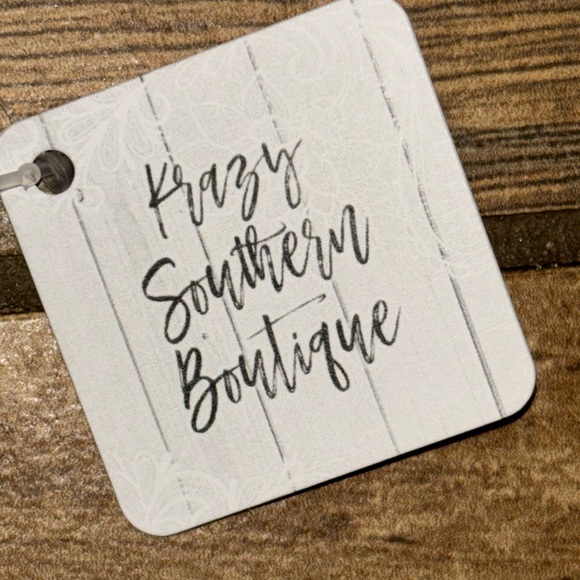 Krazy
Southern
Boutique